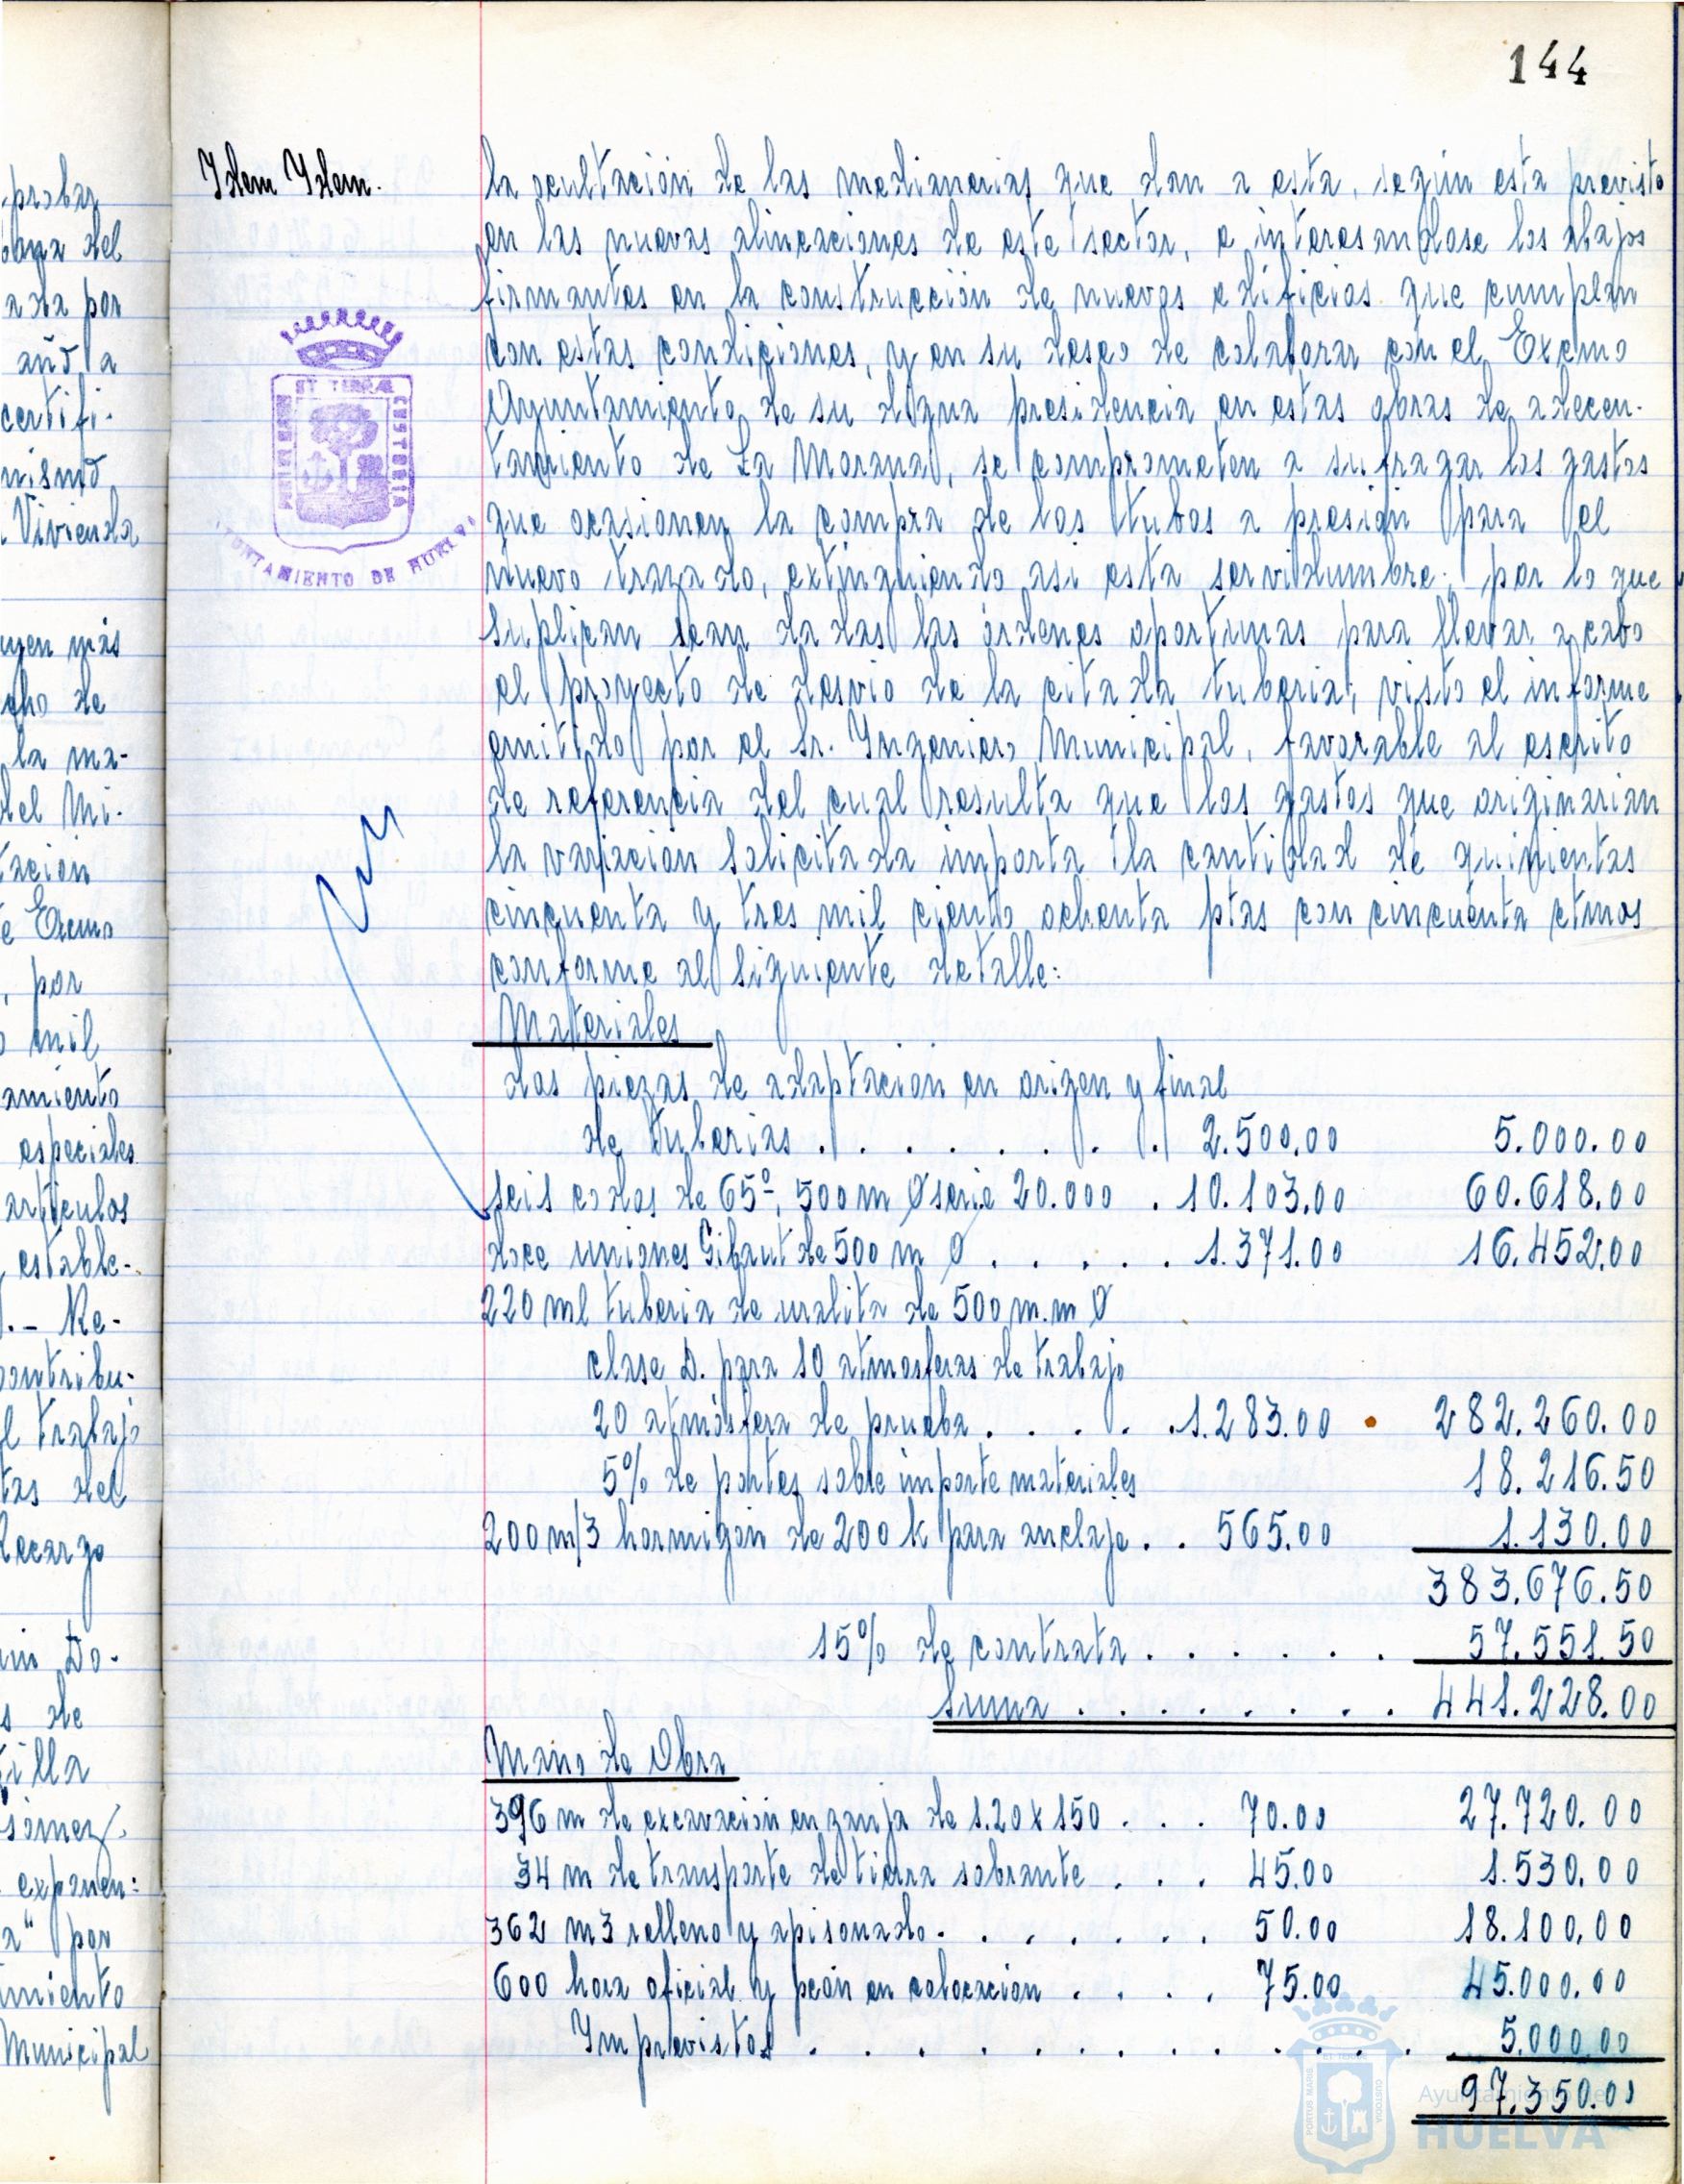 144
probar
bana del
ada por
añd a
certifi-
nismo
Vivienda
uyen más
cho de
la ma-
del Mi-
tación
e Excmo
, por
mil
amiento
especiales
artículos
, estable-
.- Re-
contribu-
l trabajo
tas del
Recargo
Do-
s de
illa
Gómez
exponen:
a" por
amiento
Municipal
Idem Idem.
ET TERRAE CUSTODIA
AYUNTAMIENTO DE HUELVA
la ocultación de las medianerias que dan a esta, según esta previsto
en las nuevas alineaciones de este sector, e interesandose los abajos
firmantes en la construcción de nuevos edificios que cumplan
con estas condiciones, y en su deseo de colaborar con el Excmo
Ayuntamiento de su digna presidencia en estas obras de adecen-
tamiento de La Morana, se comprometen a sufragar los gastos
que ocasionen la compra de los tubos a presión para el
nuevo trazado, extinguiendo asi esta servidumbre; por lo que
suplican sean dadas las órdenes oportunas para llevar a cabo
el proyecto de desvio de la citada tuberia; visto el informe
emitido por el Sr. Ingeniero Municipal, favorable al escrito
de referencia del cual resulta que los gastos que originarian
la variación solicitada importa la cantidad de quinientas
cincuenta y tres mil ciento ochenta ptas con cincuenta ctmos
conforme al siguiente detalle:
Materiales
dos piezas de adaptación en origen y final
de tuberias . . . . . . . 2.500,00 5.000.00
seis codos de 65º, 500 m Ø serie 20.000 . 10.103,00 60.618.00
doce uniones Gibaut de 500 m Ø . . . . . 1.371.00 16.452,00
220 ml tuberia de uralita de 500 m.m Ø
clase D. para 10 atmosferas de trabajo
20 atmósfera de prueba . . . . . 1.283.00 282.260.00
5% de portes sobre importe materiales 18.216.50
200 m/3 hormigón de 200 k para anclaje . . 565.00 1.130.00
383.676.50
15% de contrata . . . . . . 57.551.50
Suma . . . . . . . . 441.228.00
Mano de Obra
396 m de excavación en zanja de 1.20 x 150 . . . 70.00 27.720.00
34 m de transporte de tierra sobrante . . . 45.00 1.530.00
362 m3 relleno y apisonado . . . . . . 50.00 18.100,00
600 hora oficial y peón en colocación . . . . 75.00 45.000.00
Imprevistos . . . . . . . . . . . . 5.000.00
97.350.00
PORTUS MARIS ET TERRAE CUSTODIA
Ayuntamiento de
HUELVA